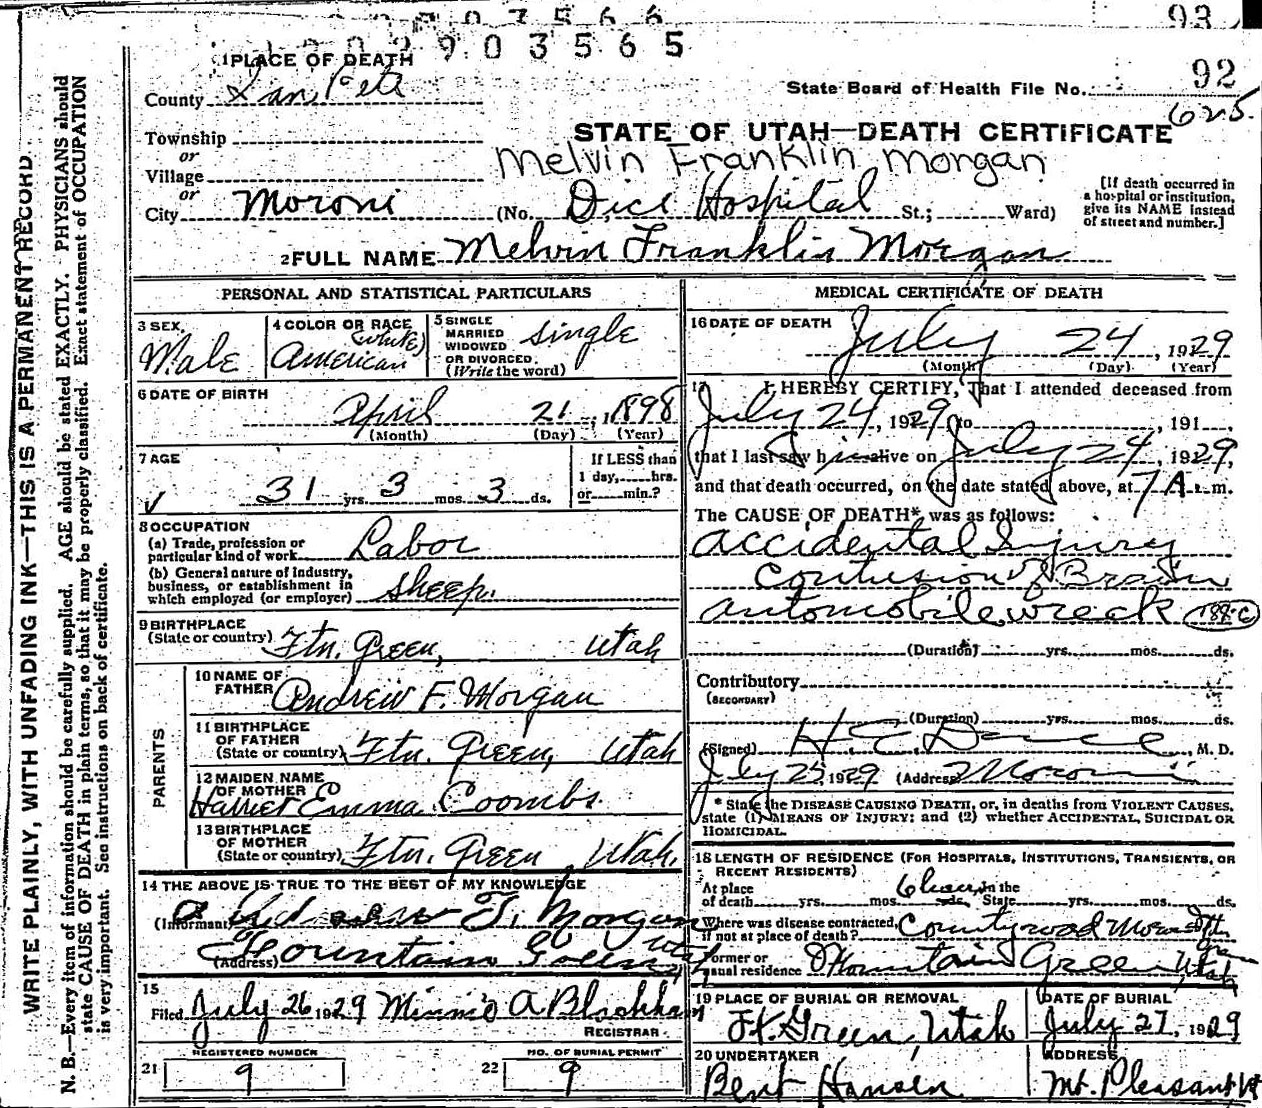 93
2903565
92
625.
1 PLACE OF DEATH
County San Pete
State Board of Health File No.
Township
or
Village
or
City Moroni
STATE OF UTAH—DEATH CERTIFICATE
Melvin Franklin Morgan
(No. Dice Hospital St.; Ward)
[If death occurred in a hospital or institution, give its NAME instead of street and number.]
2 FULL NAME Melvin Franklin Morgan
PERSONAL AND STATISTICAL PARTICULARS
3 SEX
Male
4 COLOR OR RACE
(white)
American
5 SINGLE MARRIED WIDOWED OR DIVORCED.
(Write the word)
single
6 DATE OF BIRTH
April 21, 1898
(Month) (Day) (Year)
7 AGE
31 yrs. 3 mos. 3 ds.
If LESS than
1 day, hrs.
or min.?
8 OCCUPATION
(a) Trade, profession or
particular kind of work Labor
(b) General nature of industry,
business, or establishment in
which employed (or employer) sheep.
9 BIRTHPLACE
(State or country) Ftn. Green, Utah
PARENTS
10 NAME OF
FATHER Andrew F. Morgan
11 BIRTHPLACE
OF FATHER
(State or country) Ftn. Green, Utah
12 MAIDEN NAME
OF MOTHER
Harriet Emma Coombs.
13 BIRTHPLACE
OF MOTHER
(State or country) Ftn. Green, Utah.
14 THE ABOVE IS TRUE TO THE BEST OF MY KNOWLEDGE
(Informant) F. Morgan
(Address) Fountain Green Utah
15
Filed July 26 1929 Minnie A
REGISTRAR
REGISTERED NUMBER
21 9
NO. OF BURIAL PERMIT
22 9
MEDICAL CERTIFICATE OF DEATH
16 DATE OF DEATH
July 24, 1929
(Month) (Day) (Year)
17 I HEREBY CERTIFY, That I attended deceased from
July 24, 1929 to , 191 ,
that I last saw him alive on July 24, 1929,
and that death occurred, on the date stated above, at 7 A. m.
The CAUSE OF DEATH* was as follows:
accidental Injury
Contusion of Brain
automobile wreck 188-c
(Duration) yrs. mos. ds.
Contributory
(SECONDARY)
(Duration) yrs. mos. ds.
(Signed) H. C. , M. D.
July 25 1929 (Address) Moroni
* State the DISEASE CAUSING DEATH, or, in deaths from VIOLENT CAUSES,
state (1) MEANS OF INJURY; and (2) whether ACCIDENTAL, SUICIDAL OR
HOMICIDAL.
18 LENGTH OF RESIDENCE (FOR HOSPITALS, INSTITUTIONS, TRANSIENTS, OR
RECENT RESIDENTS)
At place
of death yrs. mos. 6 hours ds. In the State yrs. mos. ds.
Where was disease contracted,
if not at place of death? County road
Former or
usual residence Fountain Green, Utah
19 PLACE OF BURIAL OR REMOVAL
Ft. Green, Utah
DATE OF BURIAL
July 27, 1929
20 UNDERTAKER
Bent Hansen
ADDRESS
Mt. Pleasant Ut
WRITE PLAINLY, WITH UNFADING INK—THIS IS A PERMANENT RECORD
N. B.—Every item of information should be carefully supplied. AGE should be stated EXACTLY. PHYSICIANS should
state CAUSE OF DEATH in plain terms, so that it may be properly classified. Exact statement of OCCUPATION
is very important. See instructions on back of certificate.